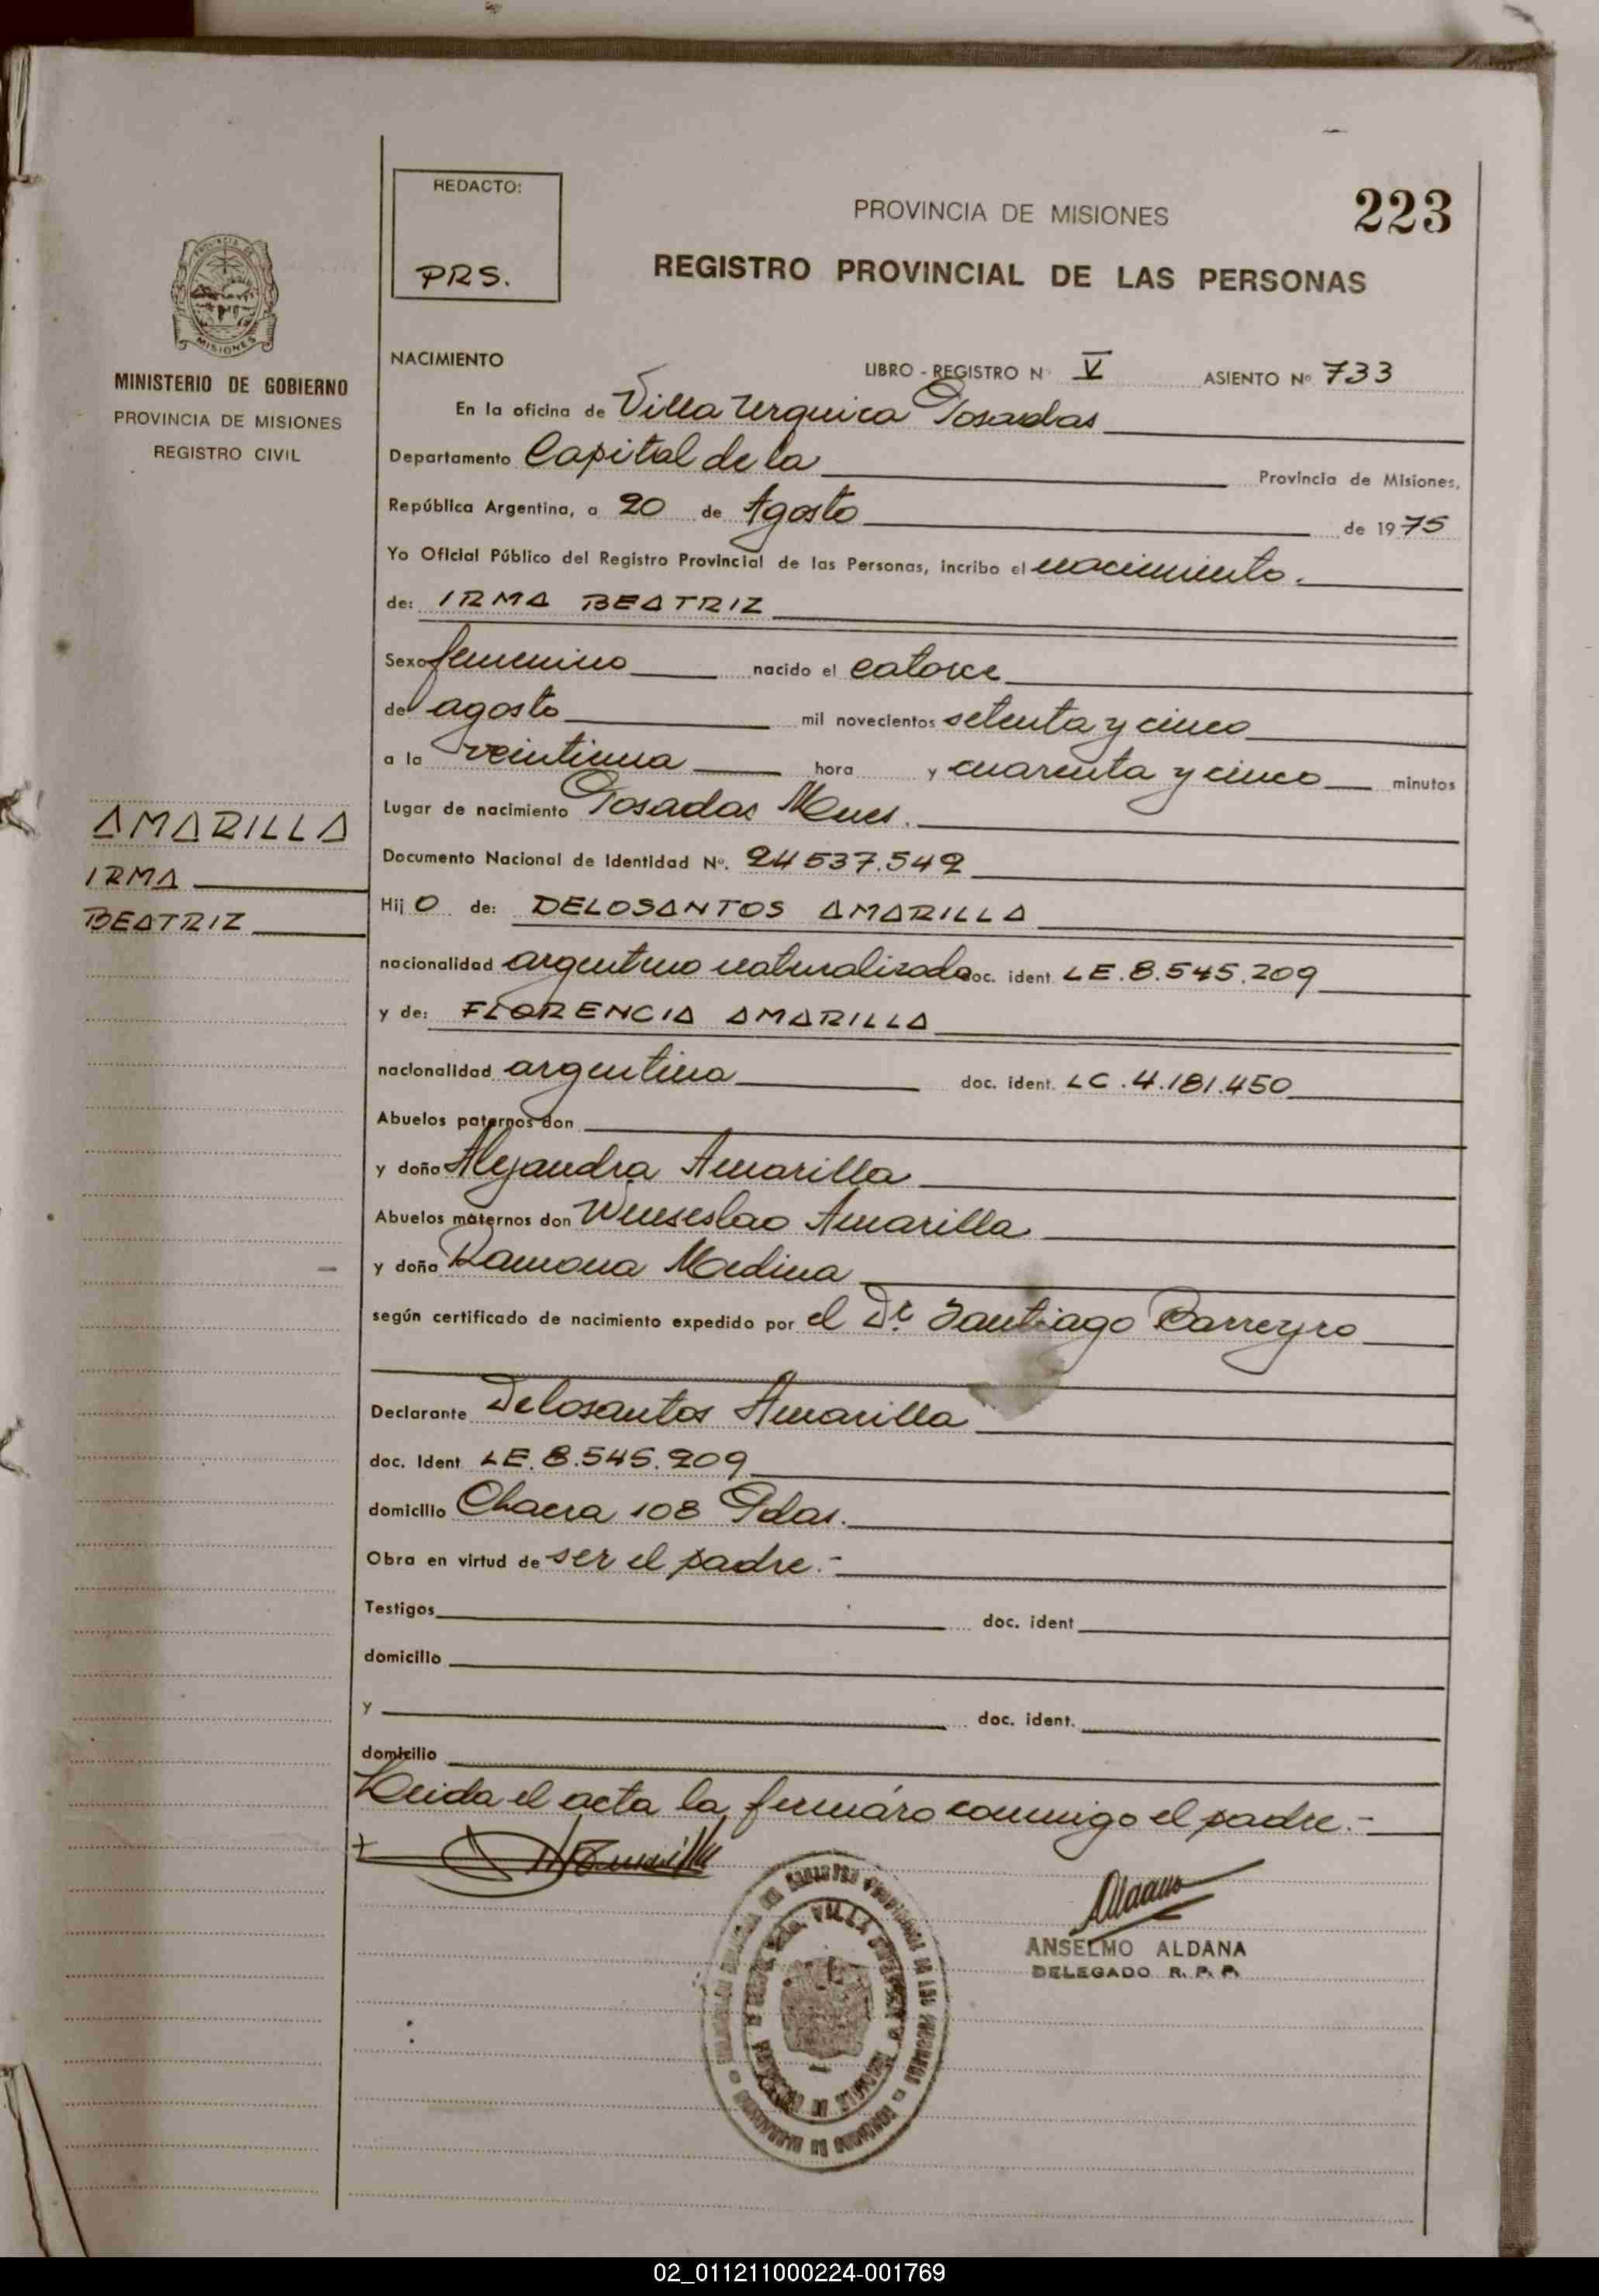 REDACTO:
PRS.
PROVINCIA DE MISIONES
223
REGISTRO PROVINCIAL DE LAS PERSONAS
MISIONES
MINISTERIO DE GOBIERNO
PROVINCIA DE MISIONES
REGISTRO CIVIL
NACIMIENTO LIBRO - REGISTRO N° V ASIENTO Nº 733
En la oficina de Villa Urquiza Posadas
Departamento Capital de la Provincia de Misiones,
República Argentina, a 20 de Agosto de 1975
Yo Oficial Público del Registro Provincial de las Personas, incribo el nacimiento.
de: IRMA BEATRIZ
Sexo femenino nacido el catorce
de agosto mil novecientos setenta y cinco
a la veintiuna hora y cuarenta y cinco minutos
Lugar de nacimiento Posadas Mnes.
Documento Nacional de Identidad Nº. 24537.542
AMARILLA
IRMA
BEATRIZ
Hij O de: DELOSANTOS AMARILLA
nacionalidad argentino naturalizado doc. ident. LE.8.545.209
y de: FLORENCIA AMARILLA
nacionalidad argentina doc. ident. LC.4.181.450
Abuelos paternos don
y doña Alejandra Amarilla
Abuelos maternos don Wenseslao Amarilla
y doña Ramona Medina
según certificado de nacimiento expedido por el Dr. Santiago Barreyro
Declarante Delosantos Amarilla
doc. Ident LE.8.545.209
domicilio Chacra 108 Pdas.
Obra en virtud de ser el padre.-
Testigos doc. ident
domicilio
y doc. ident.
domicilio
Leida el acta la firmáro conmigo el padre.-
VILLA
ANSELMO ALDANA
DELEGADO R. P. P.
02_011211000224-001769